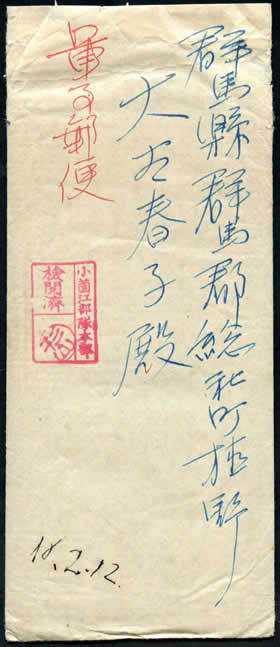 群馬縣群馬郡総社町植野
大 春子殿
軍事郵便
小薗江部隊本部
檢閲濟
18.2.12.